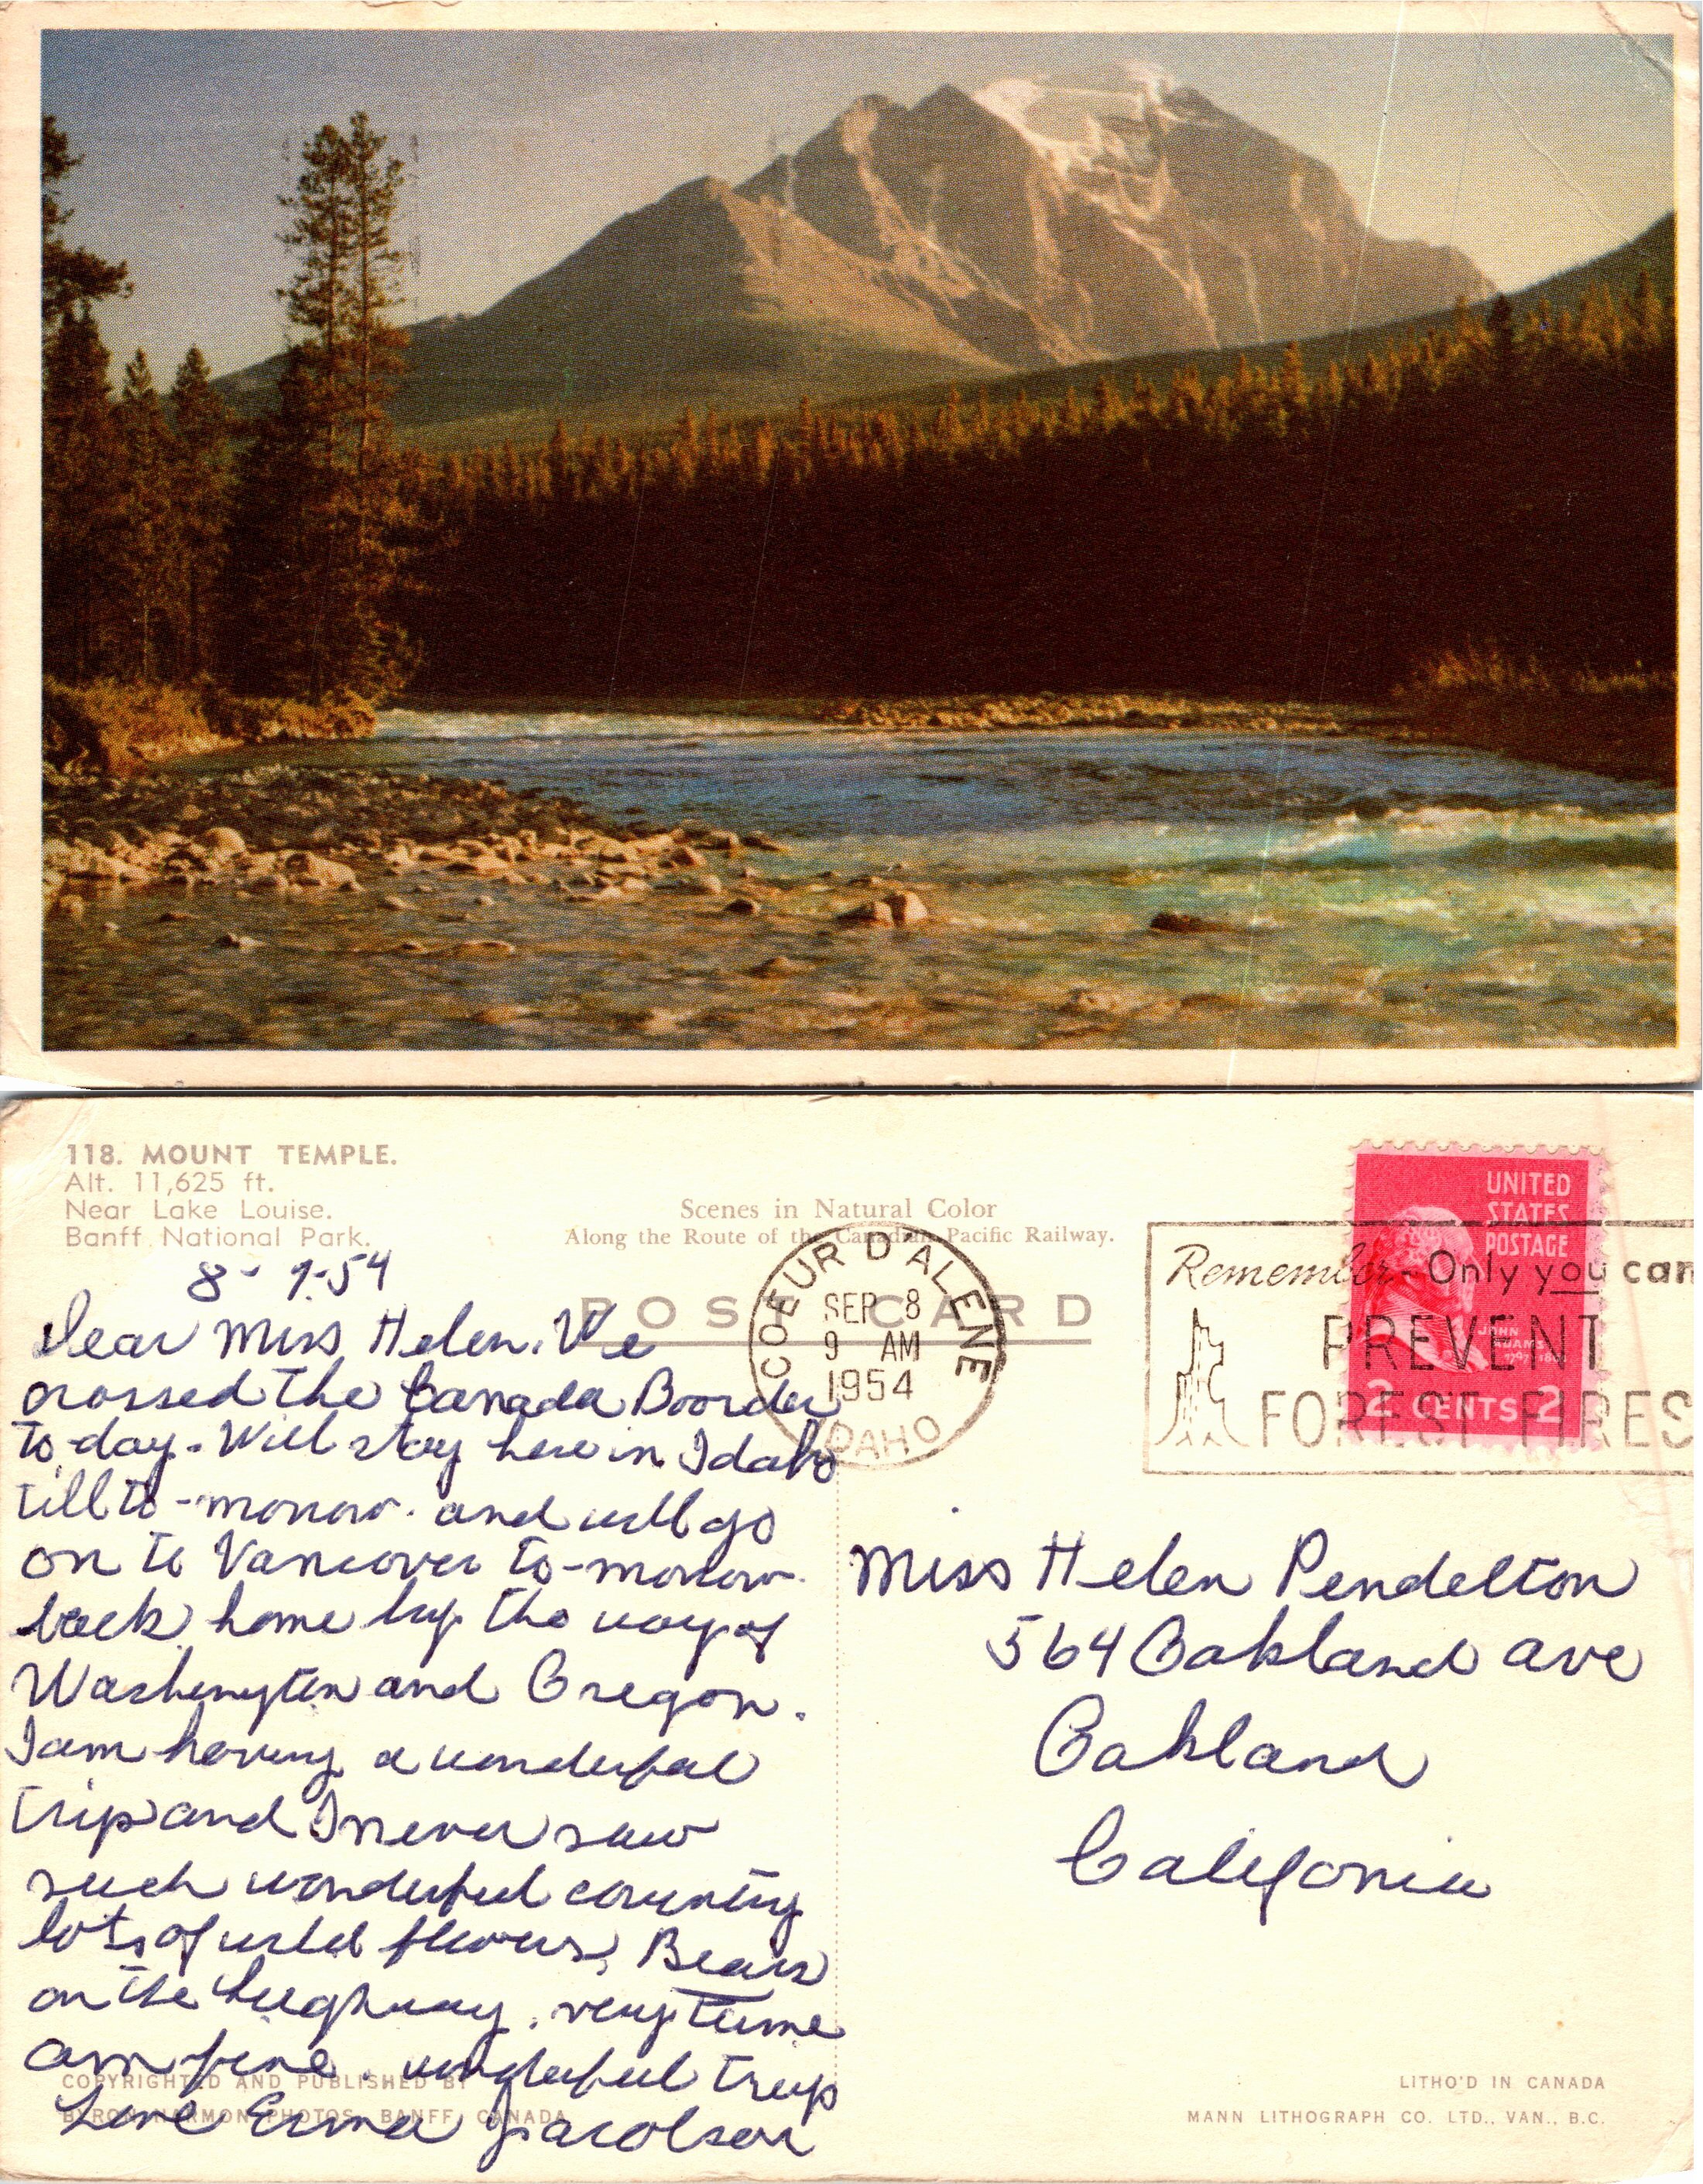 118. MOUNT TEMPLE.
Alt. 11,625 ft.
Near Lake Louise.
Banff National Park.
Scenes in Natural Color
Along the Route of the Canadian Pacific Railway.
POST CARD
COEUR D'ALENE
SEP 8
9 AM
1954
IDAHO
UNITED
STATES
POSTAGE
JOHN
ADAMS
2 CENTS 2
Remember - Only you can
PREVENT
FOREST FIRES
8- 7-54
Dear Miss Helen. We
crossed the Canada Boorder
to-day. Will stay here in Idaho
till to-morrow. and will go
on to Vancover to-morrow.
back home by the way of
Washington and Oregon.
I am having a wonderful
trip and I never saw
such wonderful country
lots of wild flowers, Bears
on the highway. very tame
am fine. wonderful trip
Love Erma Jacolson
Miss Helen Pendelton
564 Oakland ave
Oakland
Califonia
COPYRIGHTED AND PUBLISHED BY
BYRON HARMON PHOTOS, BANFF, CANADA
LITHO'D IN CANADA
MANN LITHOGRAPH CO. LTD., VAN., B.C.